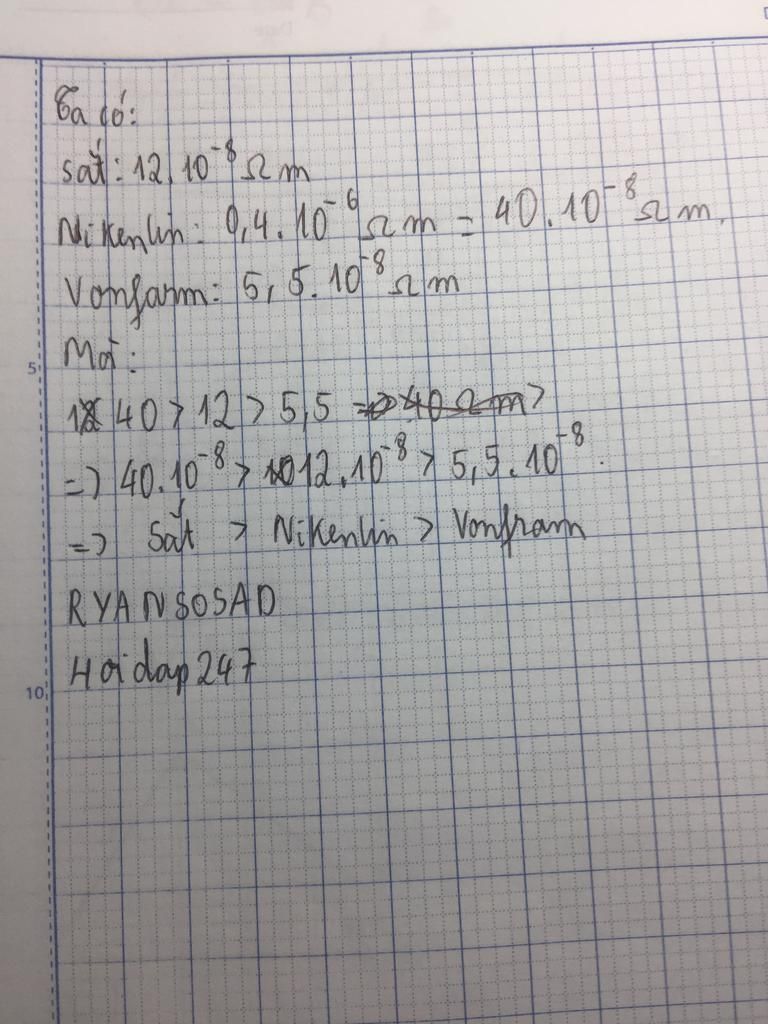 Ta có:
Sắt: 12.10⁻⁸ Ω m
Nikenlin: 0,4.10⁻⁶ Ω m = 40.10⁻⁸ Ω m.
Vonfarm: 5,5.10⁻⁸ Ω m
Mà:
40 > 12 > 5,5 => 40 Ω m >
=> 40.10⁻⁸ > 12.10⁻⁸ > 5,5.10⁻⁸.
=> Sắt > Nikenlin > Vonfram
RYANSOSAD
Hoidap247
5
10